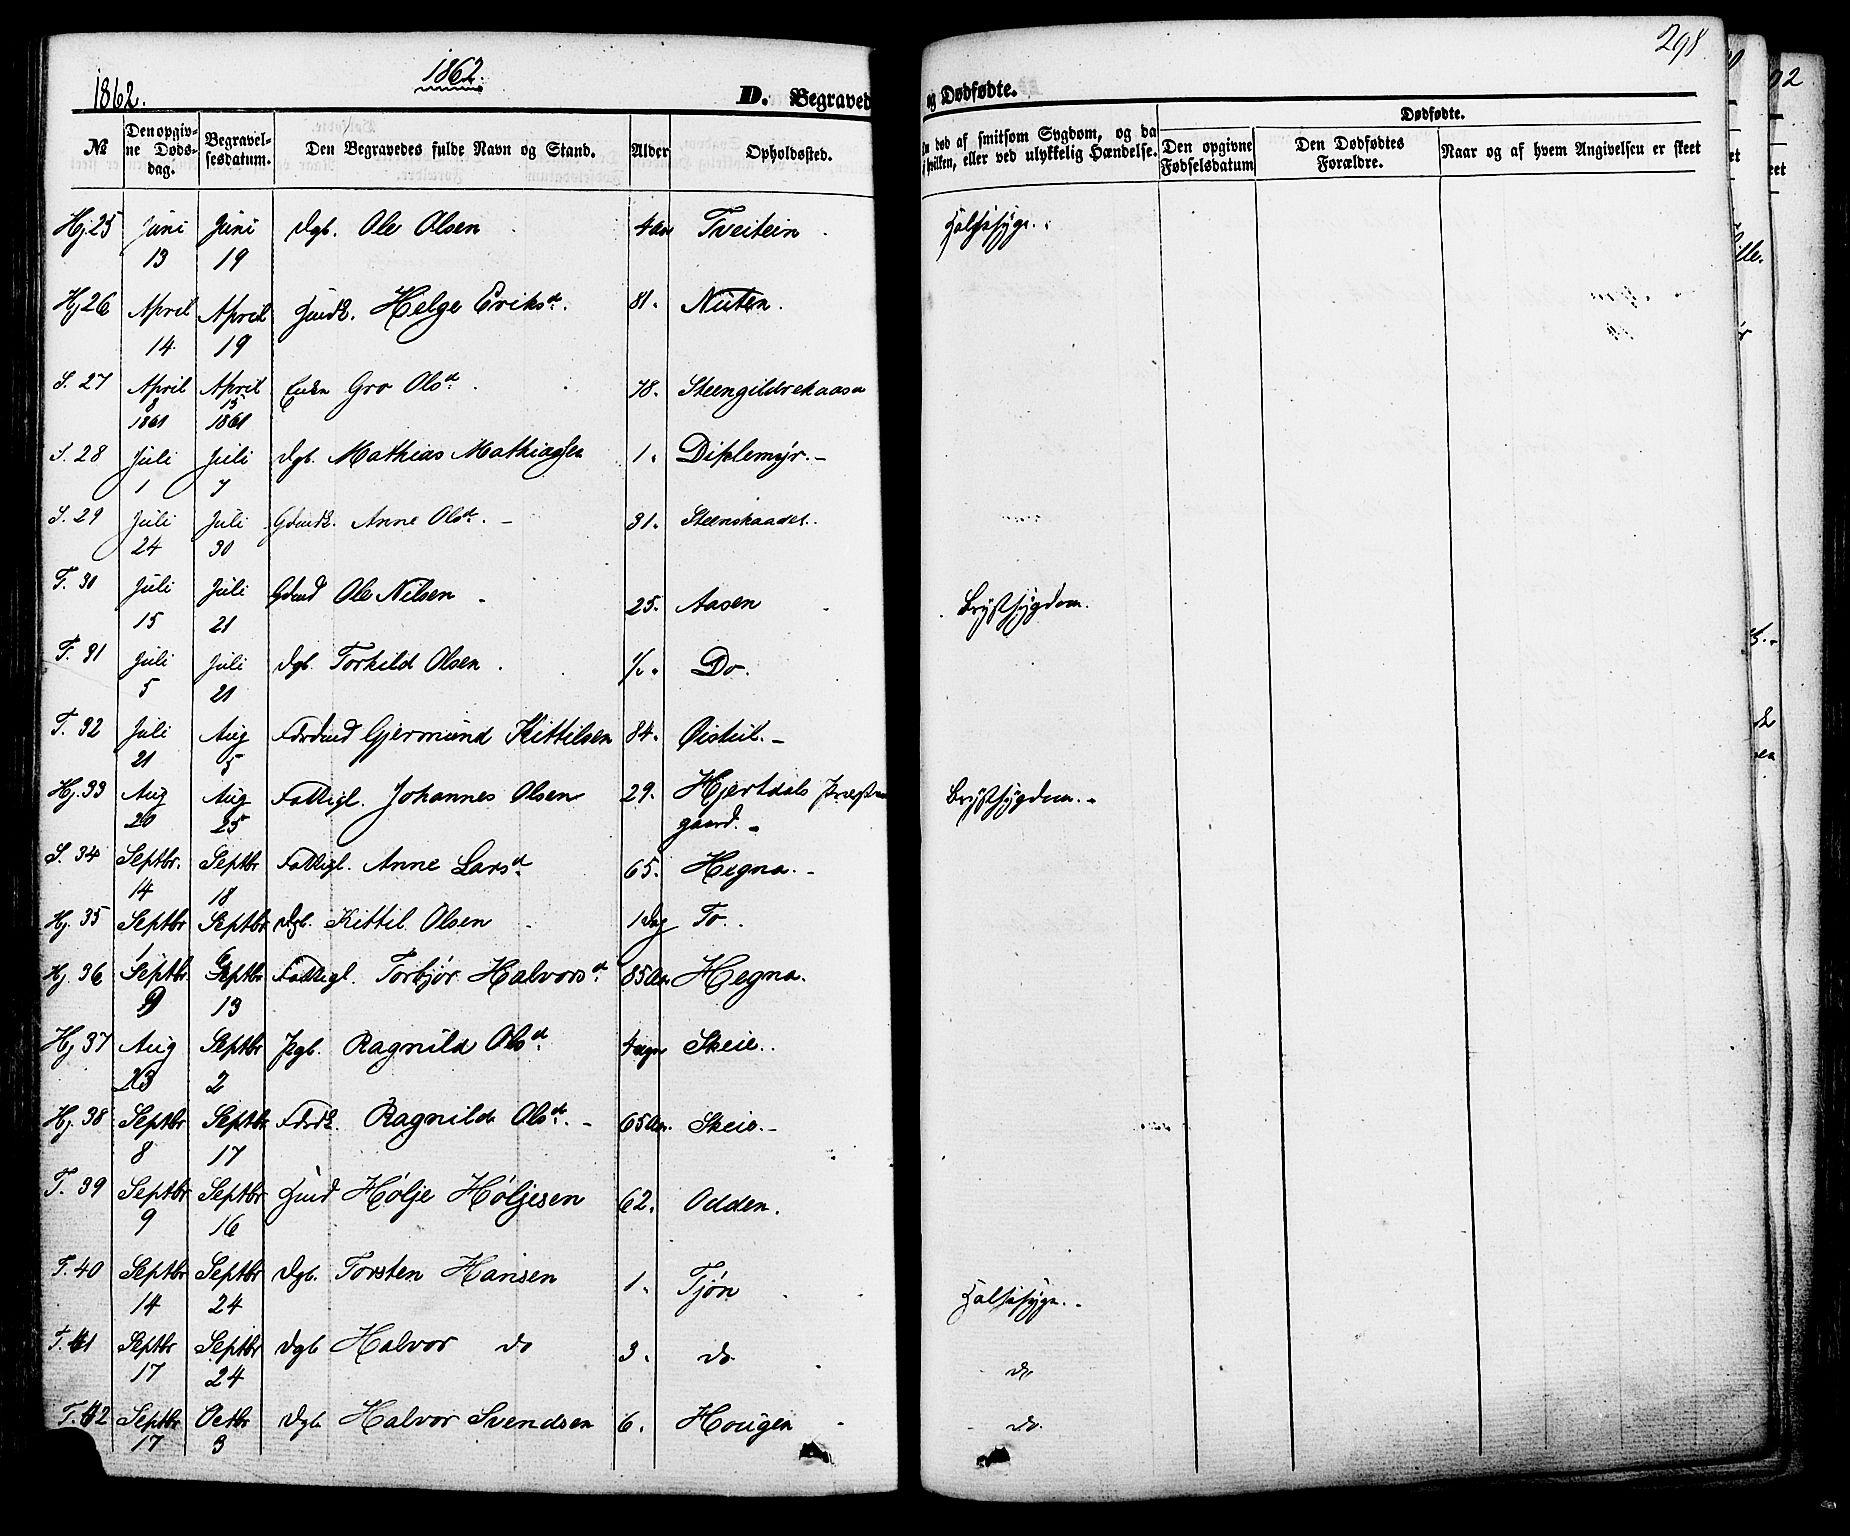 1862.
1862.
298.
D. Begravede
og Dødfødte.
№
Den opgivne Dødsdag.
Begravelsesdatum.
Den Begravedes fulde Navn og Stand.
Alder
Opholdssted.
død af smitsom Sygdom, og da
hvilken, eller ved ulykkelig Hændelse.
Dødfødte.
Den opgivne Fødselsdatum
Den Dødfødtes Forældre.
Naar og af hvem Angivelsen er skeet
Hj. 25 Juni 13 Juni 19 dgb. Ole Olsen 4 Tveitein Halssyge.
Hj 26 April 14 April 19 Helge Eriksd. 81. Nuten.
S. 27 April 8 1861 April 15 1861 Enken Gro Olsd. 78. Steengildrekaasa
S. 28 Juli 1 Juli 7 dgb. Mathias Mathiassen 1. Diplemyr.
S. 29 Juli 24 Juli 30 Anne Olsd. 31. Steenskaadet.
T. 30 Juli 15 Juli 21 Gdmd Ole Nilsen 25. Aasen Brystsygdom.
T. 31 Juli 5 Juli 21 dgb. Torkild Olsen Do.
T. 32 Juli 21 Aug 5 Gjermund Kittilsen 84. Øistul.
Hj. 33 Aug 20 Aug 25 Fattigl. Johannes Olsen 29. Hjertdals Præstegaard. Brystsygdom.
S. 34 Septbr. 14 Septbr 18 Fattigl. Anne Larsd. 65. Hegna.
Hj. 35 Septbr 1 Septbr dgb. Kittil Olsen 1 Dag To.
Hj. 36 Septbr 9 Septbr 13 Fattigl. Torbjør Halvorsd. 85 Hegna.
Hj. 37 Aug 23 Septbr 2 pgb. Ragnild Olsd. Skeie.
Hj. 38 Septbr 8 Septbr 17 Ragnild Olsd. 65 Skeie.
T. 39 Septbr 9 Septbr 16 Hølje Høljesen 62. Odden.
T. 40 Septbr 14 Septbr 24 dgb. Torsten Hansen 1. Tjøn Halssyge.
T. 41 Septbr 17 Septbr 24 dgb Halvor do 3. do do
T. 42 Septbr 17 Octbr 3 dgb Halvor Svendsen 6. Hougen do.